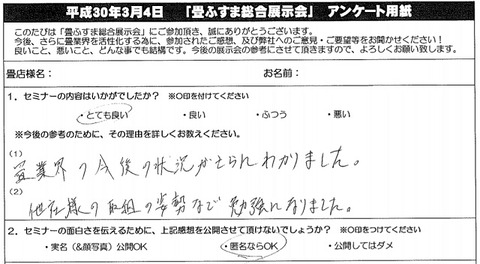 平成30年3月4日 「畳ふすま総合展示会」 アンケート用紙
このたびは「畳ふすま総合展示会」にご参加頂き、誠にありがとうございます。
今後、さらに畳業界を活性化する為に、参加されたご感想、及び弊社へのご意見・ご要望等をお聞かせください!
良いこと、悪いこと、どんな事でも結構です。今後の展示会の参考にさせて頂きますので、よろしくお願い致します。
畳店様名: お名前:
1.セミナーの内容はいかがでしたか? ※○印を付けてください
・とても良い ・良い ・ふつう ・悪い
※今後の参考のために、その理由を詳しくお教えください。
(1)
畳業界の今後の状況が わかりました。
(2)
他社様の取組の姿勢など勉強になりました。
2.セミナーの面白さを伝えるために、上記感想を公開させて頂けないでしょうか? ※○印をつけてください
・実名(&顔写真)公開OK ・匿名ならOK ・公開してはダメ